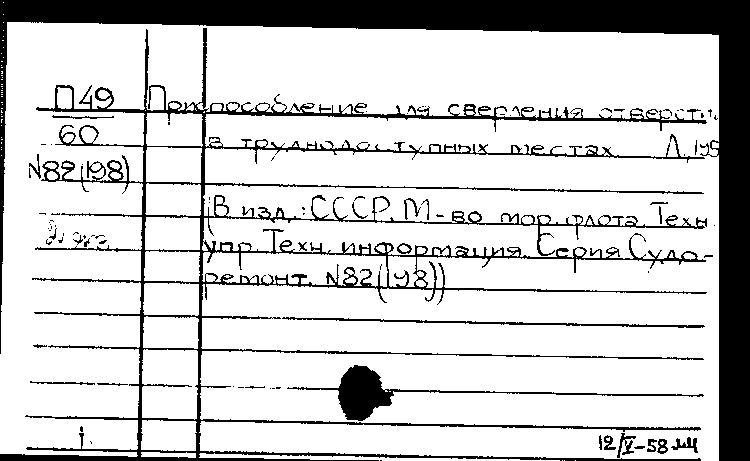 П49
60
N82(198)
2 экз.
Приспособление для сверления отверсти
в труднодоступных местах Л, 195
(В изд.: СССР. М-во мор. флота. Техн.
упр. Техн. информация. Серия Судо-
ремонт. N82(198))
1.
12/V-58